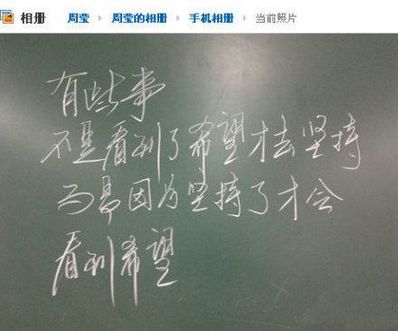 相册 周莹 周莹的相册 手机相册 当前照片
有些事
不是看到了希望才去坚持
而是因为坚持了才会
看到希望